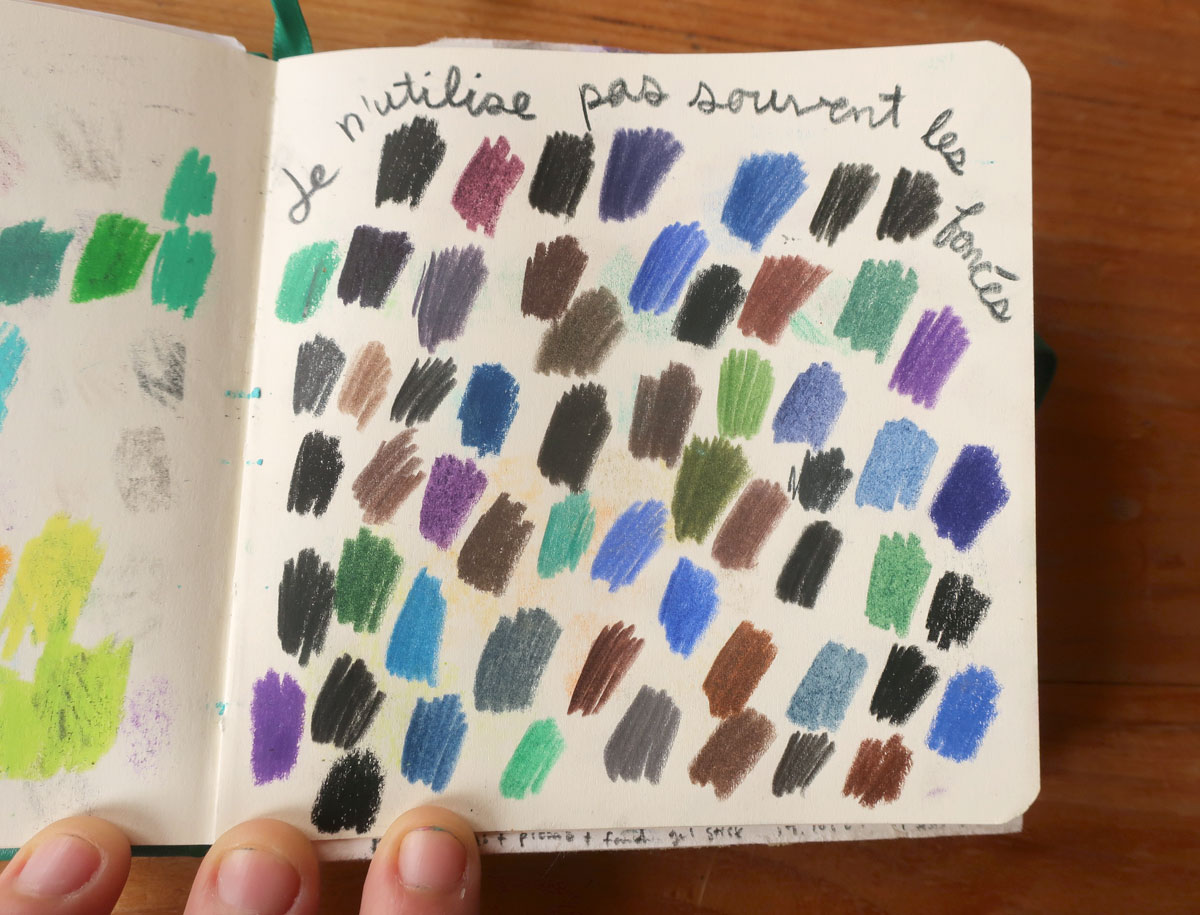 Je n'utilise pas souvent les foncés
gel stick